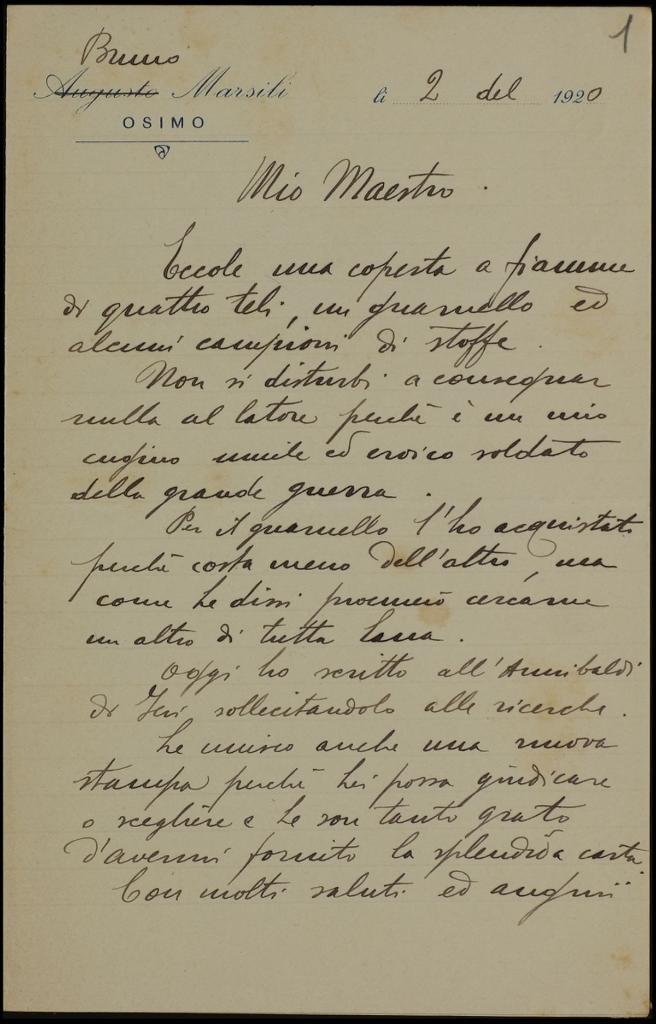 1
Bruno
Augusto Marsili
OSIMO
li 2 del 1920
Mio Maestro.
Eccole una coperta a fiamme
di quattro teli, un guarnello ed
alcuni campioni di stoffe.
Non si disturbi a consegnar
nulla al latore perchè è un mio
cugino umile ed eroico soldato
della grande guerra.
Per il guarnello l'ho acquistato
perchè costa meno dell'altro, ma
come Le dissi procurerò cercarne
un altro di tutta lana.
Oggi ho scritto all'Annibaldi
di Jesi sollecitandolo alle ricerche.
Le unisco anche una nuova
stampa perchè Lei possa giudicare
o scegliere e Le son tanto grato
d'avermi fornito la splendida carta.
Con molti saluti ed augurii